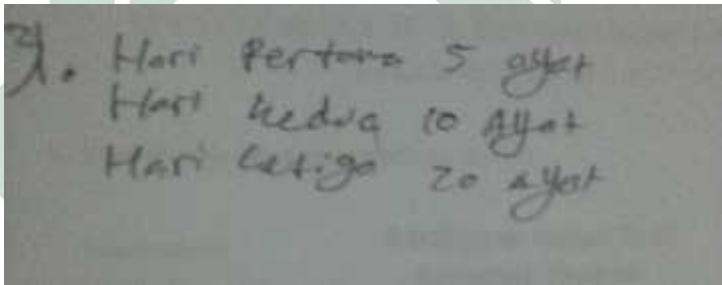 4. Hari Pertama 5 ayat
Hari kedua 10 Ayat
Hari ketiga 20 ayat